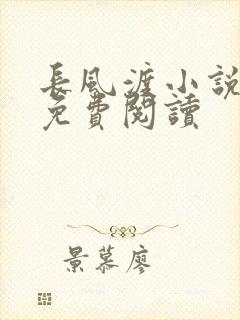 長風渡小說
免費閱讀
景慕廖